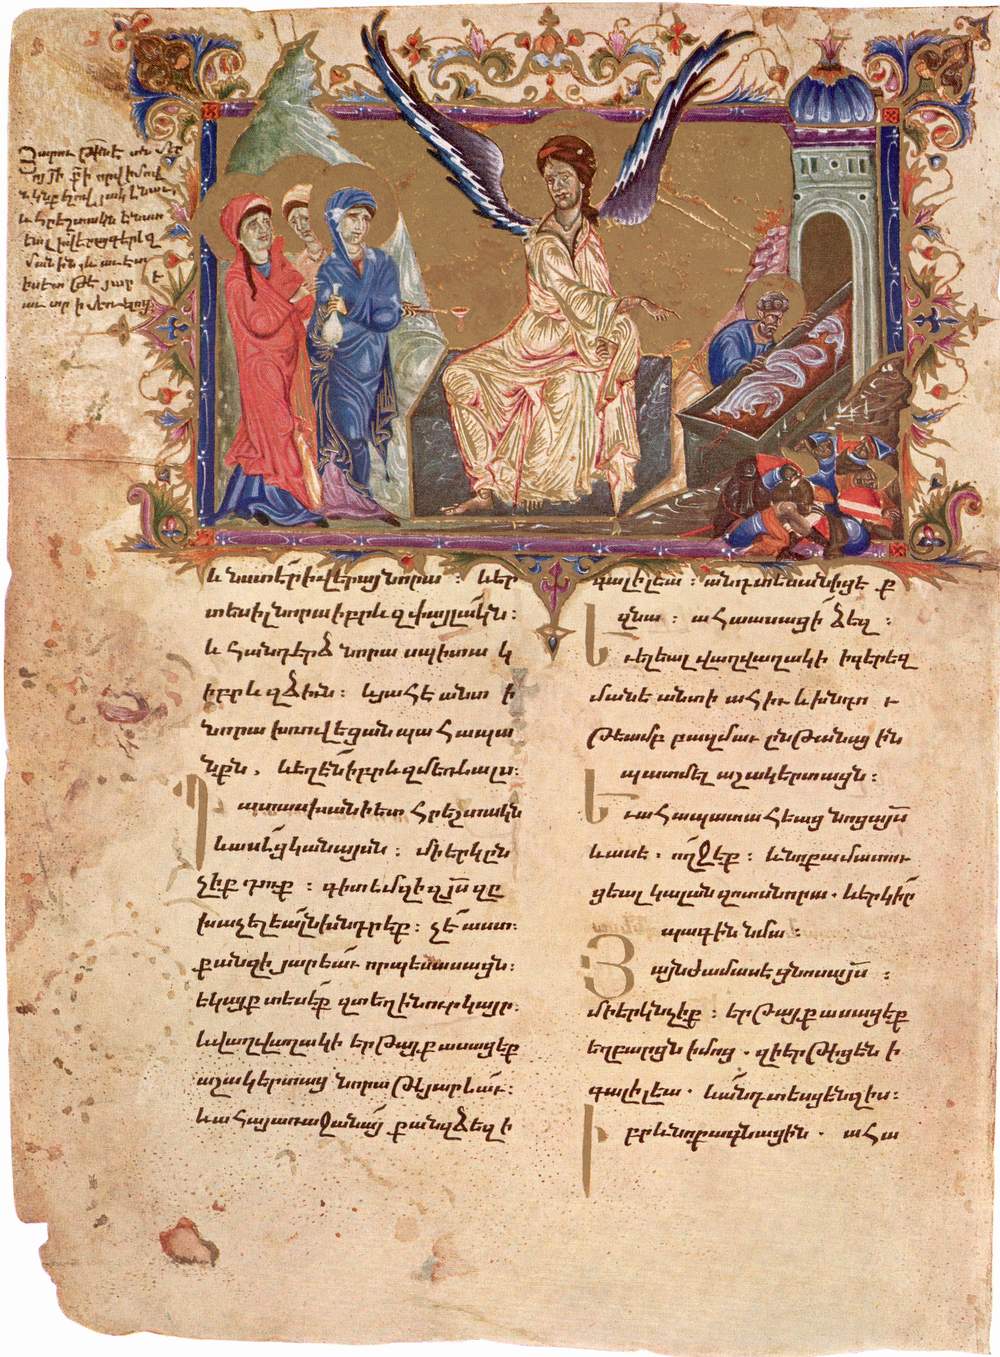 և նստէր ի վերայ նորա ։ և էր
տեսիլ նորա իբրև զփայլակն ։
և հանդերձ նորա սպիտակ
իբրև զձիւն ։ և յահէ անտ ի
նորա խռովեցան պահապա
նքն , և եղեն իբրև զմեռեալս ։
Պատասխանի ետ հրեշտակն
և ասէ ցկանայսն ։ մի երկըն
չիք դուք ։ գիտեմ զի զյս զը
խաչելեալն խնդրէք ։ չէ աստ ։
քանզի յարեաւ որպէս ասացն ։
եկայք տեսէք զտեղին ուր կայր ։
և վաղվաղակի երթայք ասացէք
աշակերտաց նորա թէ յարեաւ ։
և ահա յառաջանայ քան զձեզ ի
գալիլեա ։ անդ տեսանիցէք
զնա ։ ահա ասացի ձեզ ։
Եւ ելեալ վաղվաղակի ի գերեզ
մանէ անտի ահիւ և խնդու
թեամբ բազմաւ ընթանային
պատմել աշակերտացն ։
Եւ ահա պատահեաց նոցա յս
և ասէ . ողջ էք ։ և նոքա մատու
ցեալ կալան զոտս նորա . և երկիր
պագին նմա ։
Յայնժամ ասէ ցնոսա յս ։
մի երկնչիք ։ երթայք ասացէք
եղբարցն իմոց . զի երթիցեն ի
գալիլեա . և անդ տեսցեն զիս ։
Իբրև նոքա գնացին . ահա